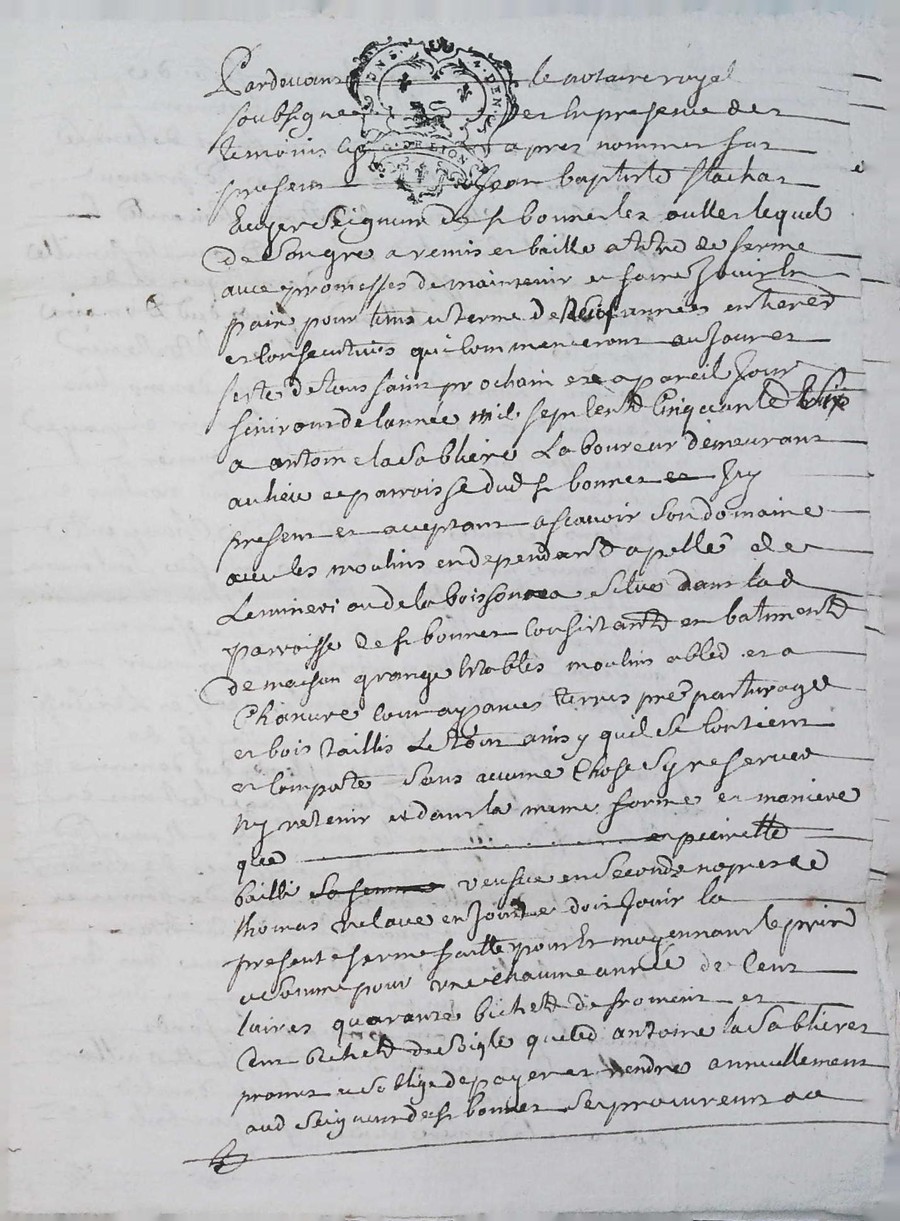 Pardevant le notaire royal
soubsigné et en presence des
temoins cy apres nommes fut
present Jean baptiste flachat
Ecuyer Seigneur de st bonnet les oulles lequel
de Son gre a remis et baillé a titre de ferme
avec promesses de maintenir et faire Jouir en
paix pour tems et terme de années entieres
et consecutives qui commenceront au Jour et
feste de tous saint prochain et a pareil Jour
finiront de l'année mil sept cent Cinquante
a antoine la Sabliere Laboureur demeurant
au lieu et parroisse dud st bonnet Icy
present et acceptant ascavoir Son domaine
avec les moulins en dependant apellé
ou de la boissonnea Situé dans lad
parroisse de st bonnet Consistant en batiments
de maison grange Etables moulins a bled et a
Chanvre aysances terres pré paturages
et bois taillis Le tout ainsy quil Se Contient
et Comporte Sans aucune Chose Sy reserver
Ny retenir et dans la meme forme et maniere
que perrette
baille veusve en Secondes nopces de
thomas en Jouit ou doit Jouir la
presente ferme faitte pour et moyennant le prix
et Somme pour une chacune année de Cent
livres quarante bichets de froment et
bichets de Seigle que led antoine la Sabliere
promet et Soblige de payer et rendre annuellement
aud Seigneur de st bonnet Ses procureurs ou